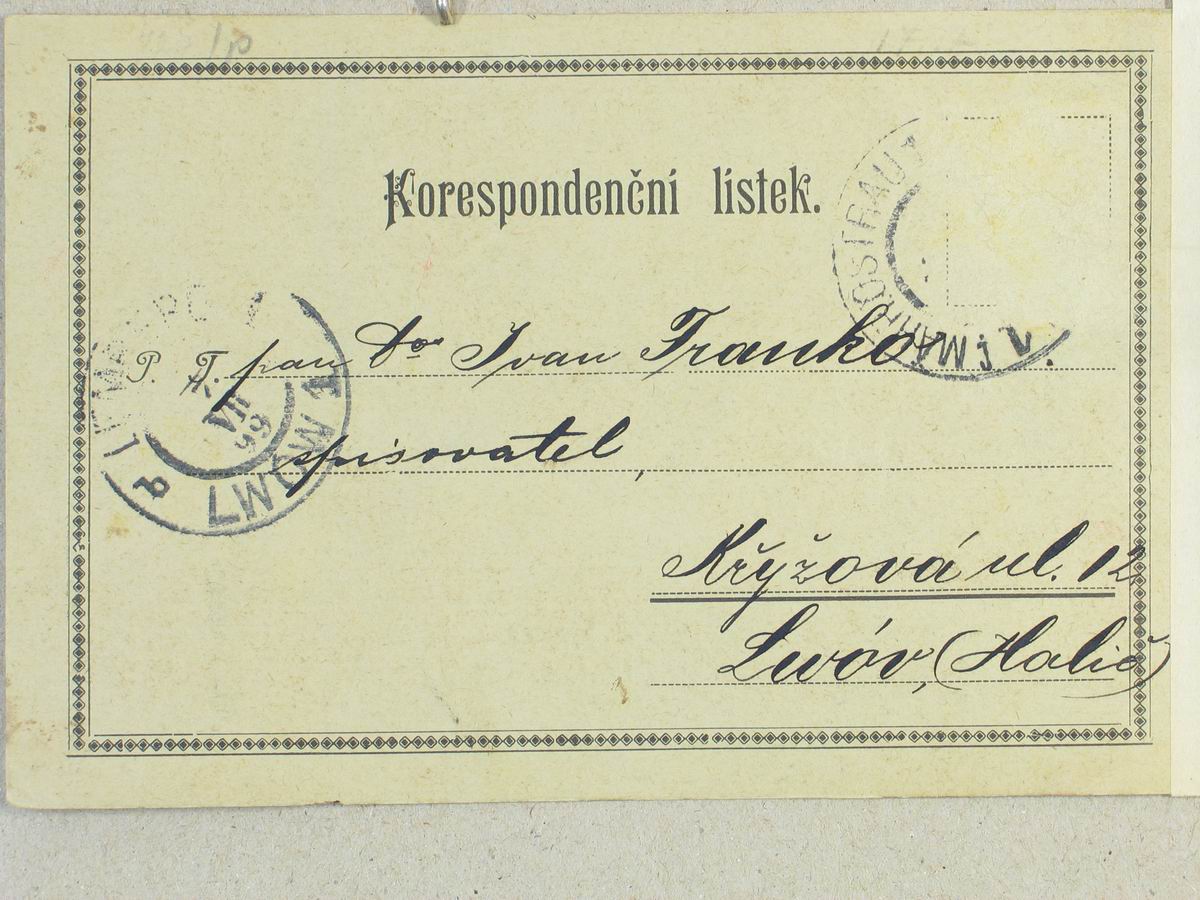 Korespondenční lístek.
P. T. pan Dor Ivan Franko
spisovatel,
Křyžová ul. 12
Lwów, (Halič)
LEMBERG 1
LWÓW 1
VII
99
MÄHR. OSTRAU